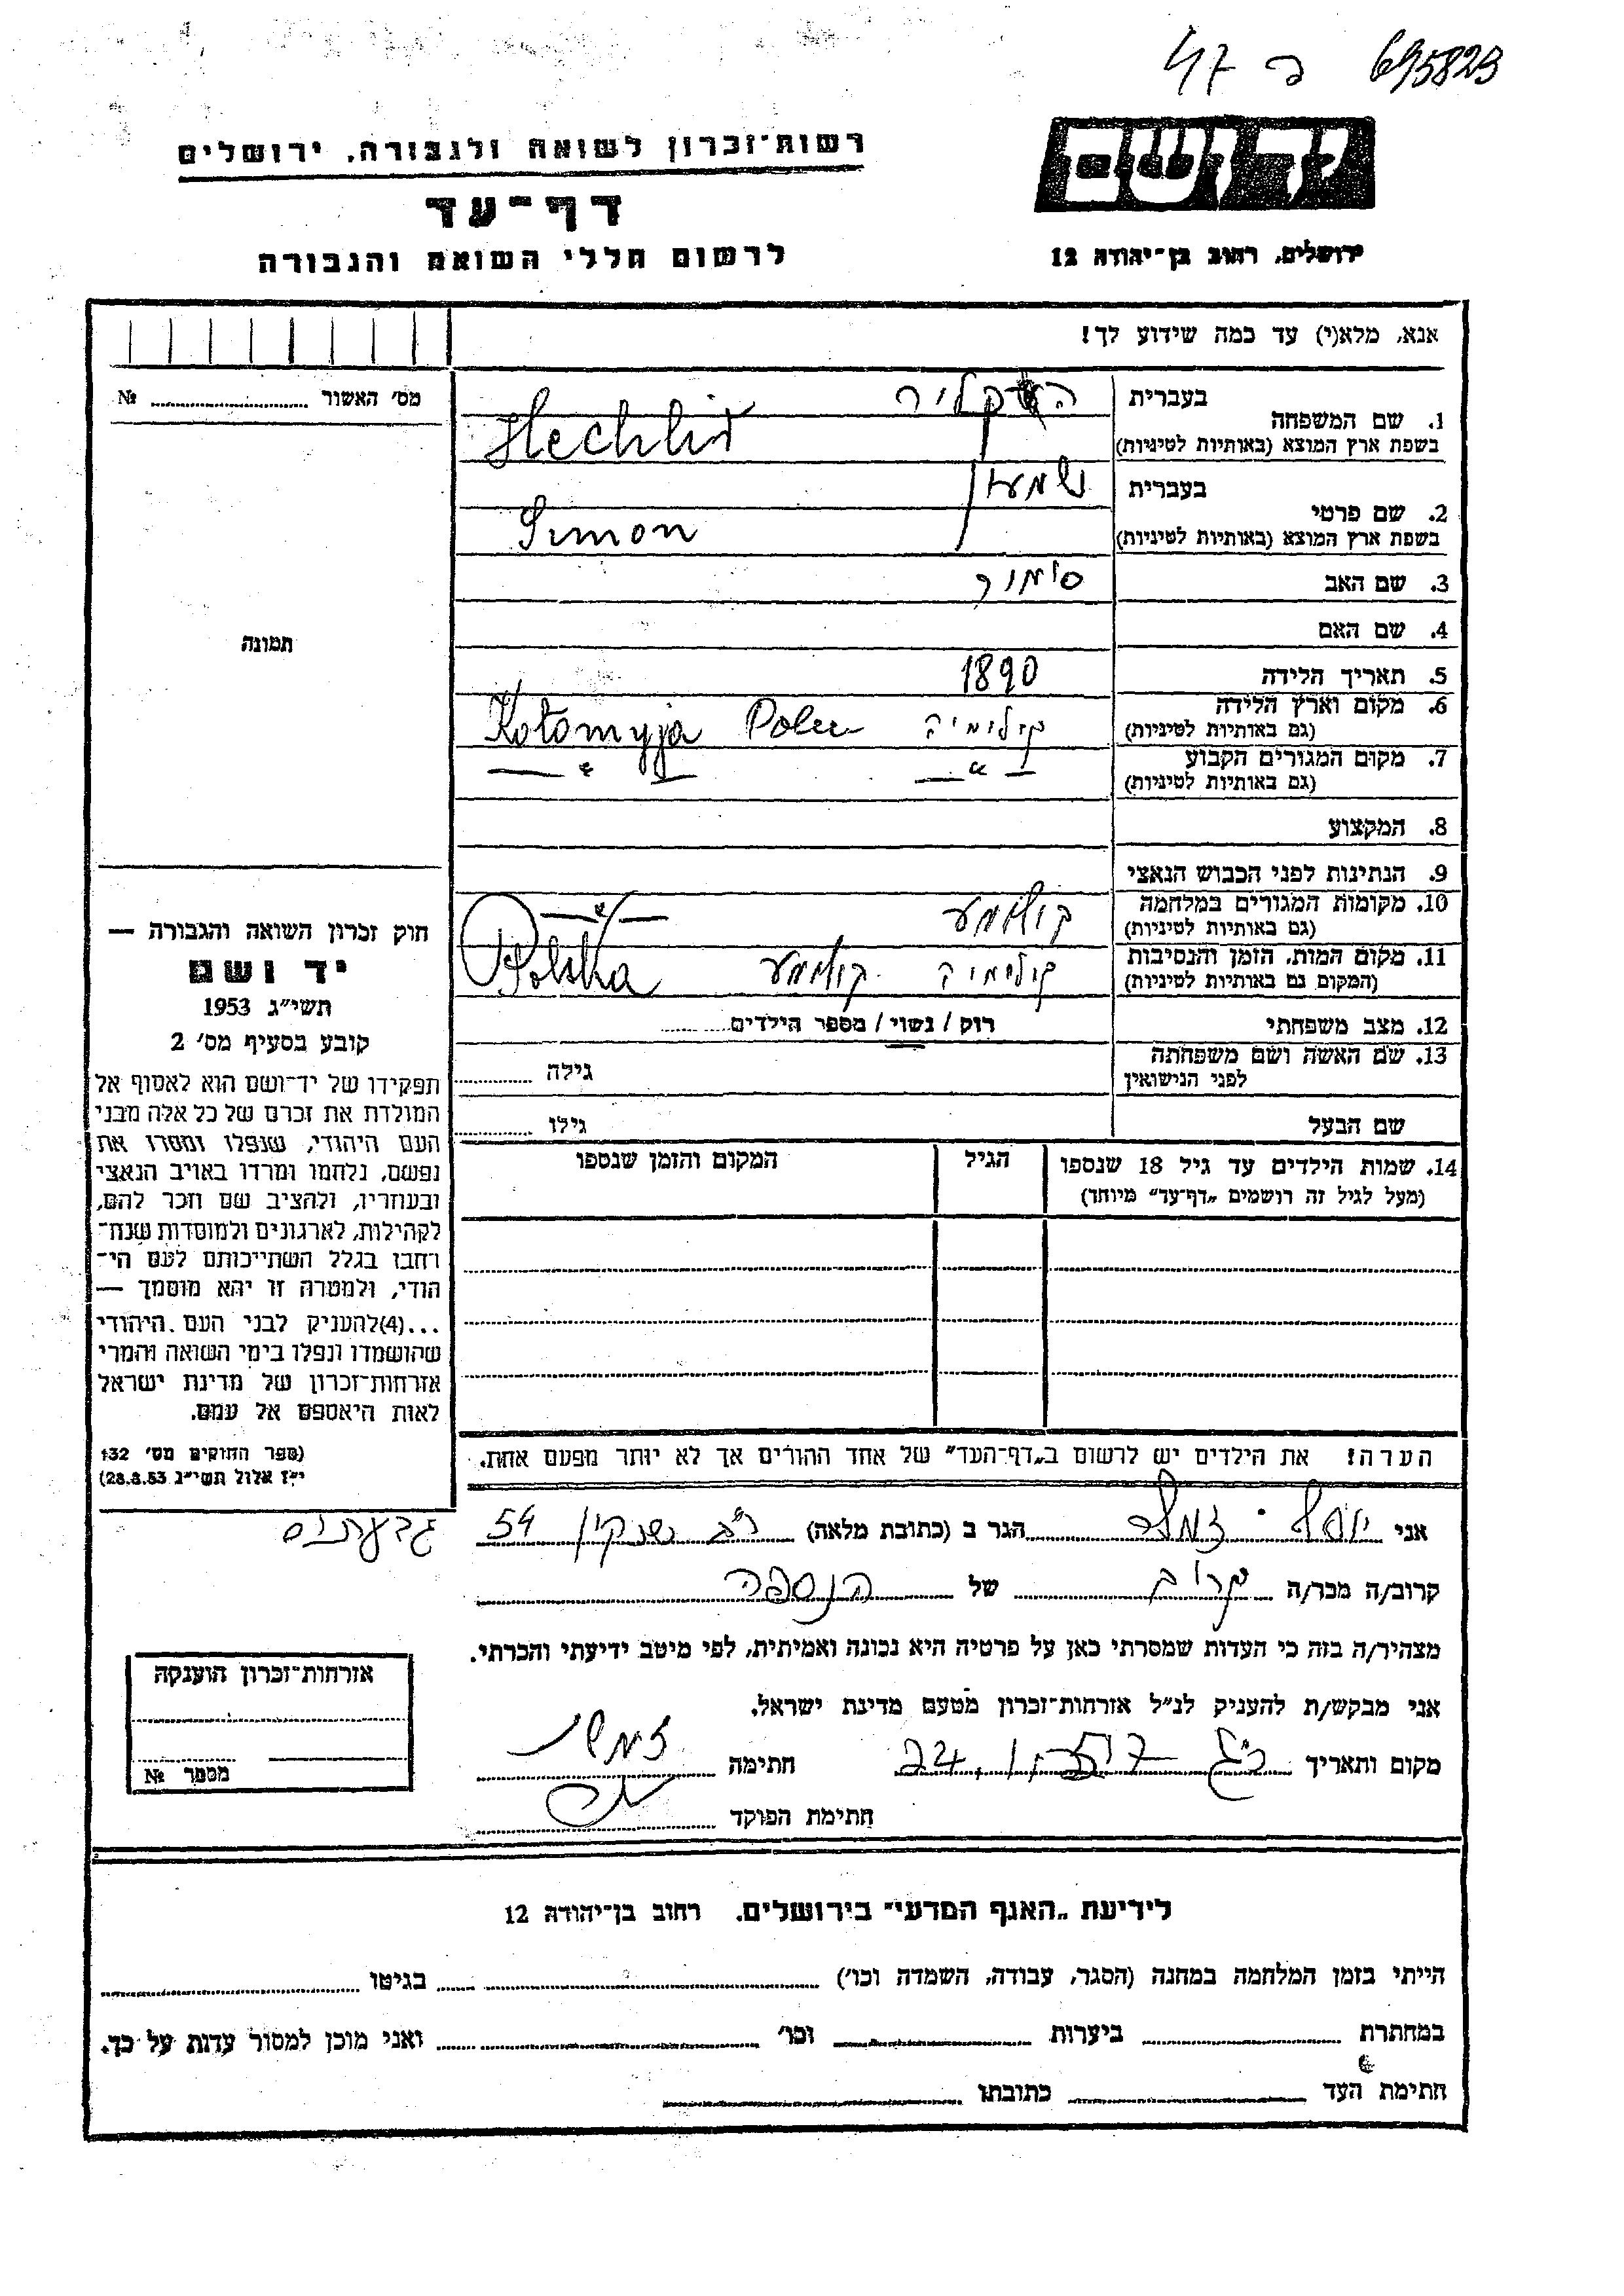 47 פ 695823
יד ושם
רשות-זכרון לשואה ולגבורה, ירושלים
דף-עד
לרשום חללי השואה והגבורה
ירושלים, רחוב בן-יהודה 12
אנא, מלא(י) עד כמה שידוע לך!
מס׳ האשור № 
בעברית
1. שם המשפחה
בשפת ארץ המוצא (באותיות לטיניות) Hechlir
בעברית שמעון
2. שם פרטי
בשפת ארץ המוצא (באותיות לטיניות) Simon
3. שם האב
4. שם האם
5. תאריך הלידה 1890
6. מקום וארץ הלידה
(גם באותיות לטיניות) קולומיה Polen Kołomyja
7. מקום המגורים הקבוע — " —
(גם באותיות לטיניות)
8. המקצוע
9. הנתינות לפני הכבוש הנאצי
10. מקומות המגורים במלחמה
(גם באותיות לטיניות) קולומע — " —
11. מקום המות, הזמן והנסיבות
(המקום גם באותיות לטיניות) קולומיה קולומע Polska
12. מצב משפחתי רוק / נשוי / מספר הילדים
13. שם האשה ושם משפחתה
לפני הנישואין גילה
שם הבעל גילו
14. שמות הילדים עד גיל 18 שנספו
(מעל לגיל זה רושמים „דף-עד" מיוחד)
הגיל
המקום והזמן שנספו
תמונה
חוק זכרון השואה והגבורה —
יד ושם
תשי״ג 1953
קובע בסעיף מס׳ 2
תפקידו של יד-ושם הוא לאסוף אל
המולדת את זכרם של כל אלה מבני
העם היהודי, שנפלו ומסרו את
נפשם, נלחמו ומרדו באויב הנאצי
ובעוזריו, ולהציב שם וזכר להם,
לקהילות, לארגונים ולמוסדות שנח-
רחבו בגלל השתייכותם לעם הי-
הודי, ולמטרה זו יהא מוסמך —
...(4)להעניק לבני העם היהודי
שהושמדו ונפלו בימי השואה והמרי
אזרחות-זכרון של מדינת ישראל
לאות היאספם אל עמם.
(ספר החוקים מס׳ 132
י״ז אלול תשי״ג 28.8.53)
הערה! את הילדים יש לרשום ב„דף-העד" של אחד ההורים אך לא יותר מפעם אחת.
אני יוסף הגר ב (כתובת מלאה) שנקין 54 גבעתיים
קרוב/ה מכר/ה קרוב של הנספה
מצהיר/ה בזה כי העדות שמסרתי כאן על פרטיה היא נכונה ואמיתית, לפי מיטב ידיעתי והכרתי.
אני מבקש/ת להעניק לנ״ל אזרחות-זכרון מטעם מדינת ישראל.
מקום ותאריך חתימה
חתימת הפוקד
אזרחות-זכרון הוענקה
מספר №
לידיעת „האגף המדעי" בירושלים, רחוב בן-יהודה 12
הייתי בזמן המלחמה במחנה (הסגר, עבודה, השמדה וכו׳) בגיטו
במחתרת ביערות וכו׳ ואני מוכן למסור עדות על כך.
חתימת העד כתובתו